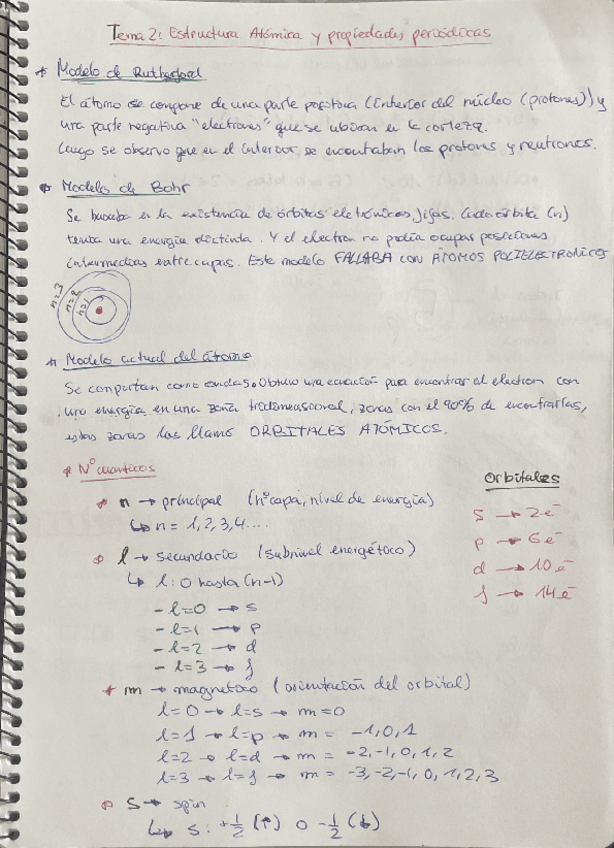 Tema 2: Estructura Atómica y propiedades periódicas
* Modelo de Rutherford
El átomo se compone de una parte positiva (interior del núcleo (protones)) y
una parte negativa "electrones" que se ubican en la corteza.
Luego se observo que en el interior se encontraban los protones y neutrones.
* Modelo de Bohr
Se basaba en la existencia de órbitas eletrónicas fijas. Cada órbita (n)
tenia una energía distinta. Y el electron no podía ocupar posiciones
intermedias entre capas. Este modelo FALLABA con ÁTOMOS POLIELECTRONICOS
n=3
n=2
n=1
* Modelo actual del átomo
Se comportan como ondas. Obtuvo una ecuación para encontrar al electron con
una energía en una zona tridimensional, zonas con el 90% de encontrarlas,
estas zonas las llamó ORBITALES ATÓMICOS.
* Nº cuanticos
Orbitales
* n → principal (nº capa, nivel de energía)
↳ n = 1, 2, 3, 4....
s → 2e⁻
p → 6e⁻
d → 10e⁻
f → 14e⁻
* l → secundario (subnivel energético)
↳ l: 0 hasta (n-1)
- l=0 → s
- l=1 → p
- l=2 → d
- l=3 → f
* m → magnetico (orientación del orbital)
l=0 → l=s → m=0
l=1 → l=p → m = -1, 0, 1
l=2 → l=d → m = -2, -1, 0, 1, 2
l=3 → l=f → m = -3, -2, -1, 0, 1, 2, 3
* S → spin
↳ s: +1/2 (↑) o -1/2 (↓)